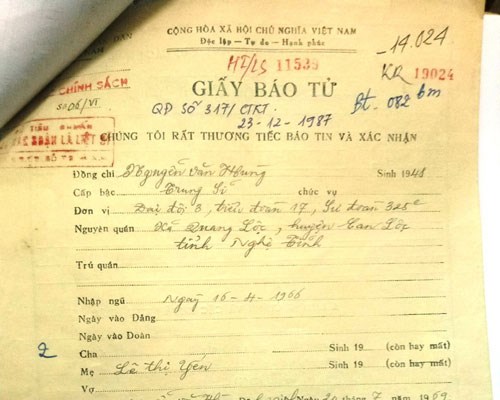 CỘNG HÒA XÃ HỘI CHỦ NGHĨA VIỆT NAM
Độc lập – Tự do – Hạnh phúc
14.024
HT/LS 11539
KR 19024
CHÍNH SÁCH
GIẤY BÁO TỬ
Bt. 082 bm
QĐ SỐ 317/CTKT.
23-12-1987
CHÚNG TÔI RẤT THƯƠNG TIẾC BÁO TIN VÀ XÁC NHẬN
Đồng chí Nguyễn Văn Hưng Sinh 1948
Cấp bậc Trung Sĩ chức vụ
Đơn vị Đại đội 3, tiểu đoàn 17, Sư đoàn 325c
Nguyên quán Xã Quang Lộc, huyện Can Lộc
tỉnh Nghệ Tĩnh
Trú quán
Nhập ngũ Ngày 16-4-1966
Ngày vào Đảng
Ngày vào Đoàn
2
Cha Sinh 19 (còn hay mất)
Mẹ Lê thị Yến Sinh 19 (còn hay mất)
Vợ